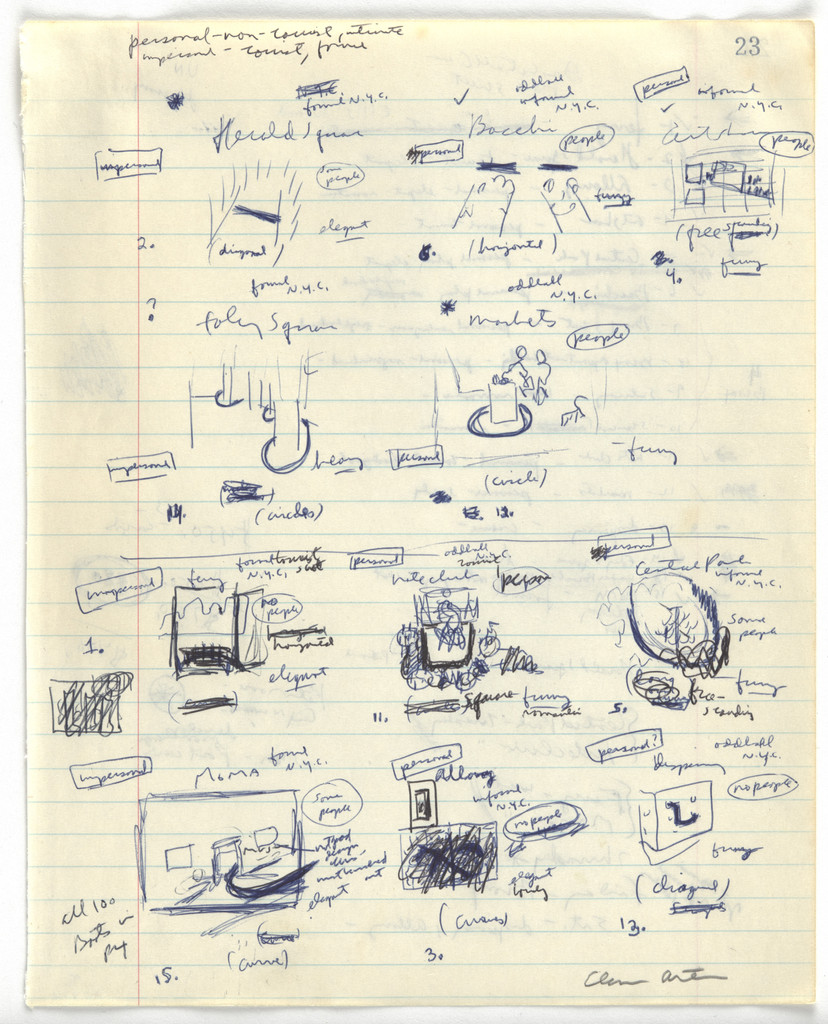 personal-non-tourist, intimate
impersonal - tourist, formal
23
formal N.Y.C.
Herald Square
impersonal
some people
elegant
(diagonal)
2.
oddball
informal
N.Y.C.
Bocchi
personal
people
funny
(horizontal)
6.
personal
informal
N.Y.C.
people
(free standing)
4.
funny
formal
N.Y.C.
?
Foley Square
impersonal
heavy
14.
(circles)
oddball
N.Y.C.
markets
people
personal
funny
(circle)
12.
impersonal
formal
N.Y.C.
ferry
no people
horizontal
elegant
1.
personal
oddball
N.Y.C.
niteclub
square
funny
romantic
11.
personal
Central Park
informal
N.Y.C.
some people
funny
free-standing
5.
impersonal
MOMA
formal
N.Y.C.
some people
elegant
(curve)
15.
all 100
Boots in
personal
informal
N.Y.C.
no people
elegant
lonely
(curves)
3.
personal?
oddball
N.Y.C.
no people
funny
(diagonal)
13.